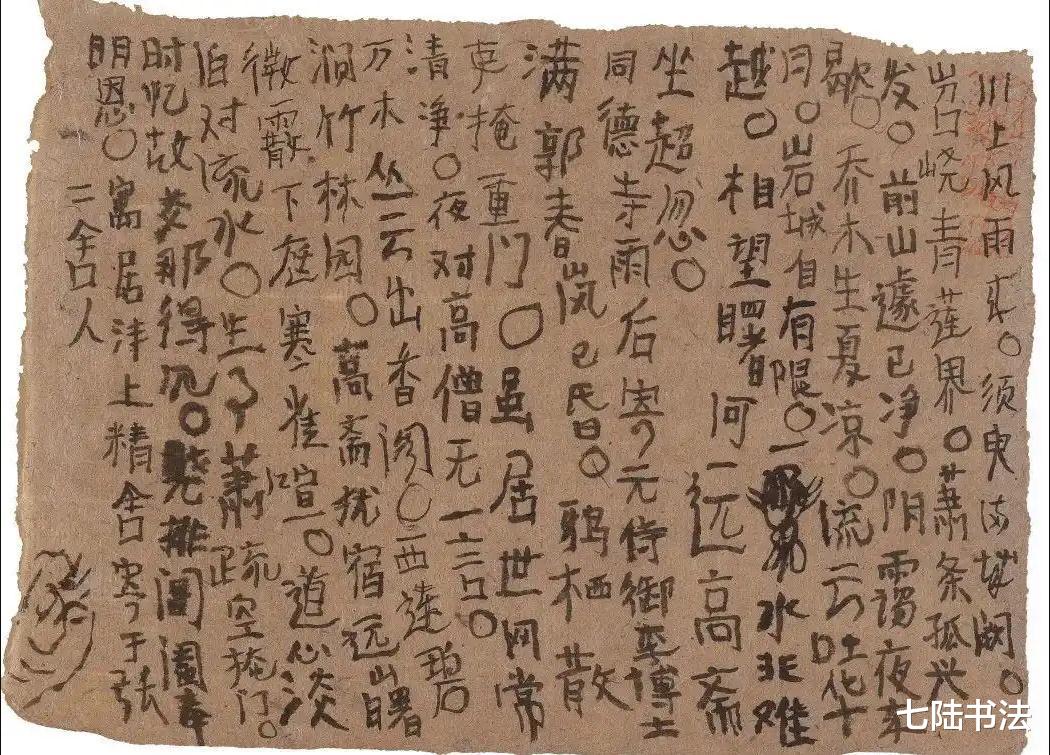 川上风雨来〇须臾满城阙〇
岧峣青莲界〇萧条孤兴
发〇前山遽已净〇阴霭夜来
歇〇乔木生夏凉〇流云吐华
月〇岩城自有限〇一水非难
越〇相望曙河远高斋
坐超忽〇
同德寺雨后寄元侍御李博士
满郭春岚已昏〇鸦栖散
吏掩重门〇虽居世网常
清净〇夜对高僧无一言〇
万木丛云出香阁〇西连碧
涧竹林园〇高斋犹宿远山曙
微霰下庭寒雀喧〇道心淡
泊对流水〇生事萧疏空掩门〇
时忆故交那得见〇晓排阊阖奉
明恩〇寓居沣上精舍寄于张
二舍人
七陆书法